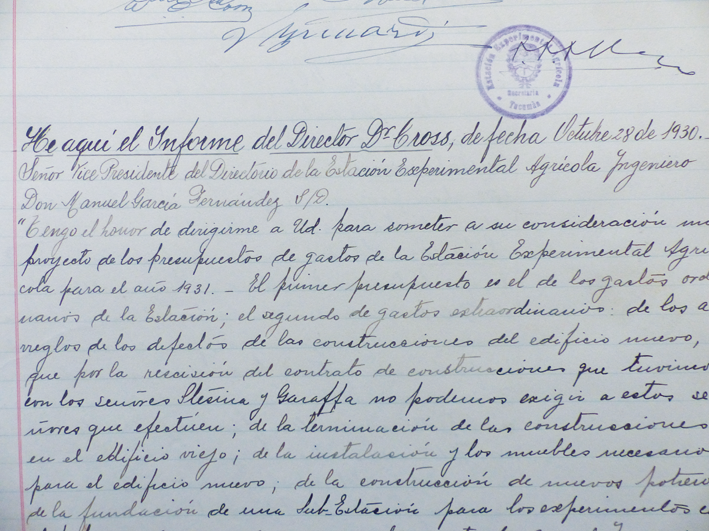 Estación Experimental Agrícola
Secretaría
Tucumán
He aquí el Informe del Director Dr. Cross, de fecha Octubre 28 de 1930.-
Señor Vice Presidente del Directorio de la Estación Experimental Agrícola Ingeniero
Don Manuel García Fernández S/D.
"Tengo el honor de dirigirme a Ud. para someter a su consideración mi
proyecto de los presupuestos de gastos de la Estación Experimental Agrí
cola para el año 1931. - El primer presupuesto es el de los gastos ord
inarios de la Estación; el segundo de gastos extraordinarios: de los a
rreglos de los defectos de las construcciones del edificio nuevo,
que por la rescisión del contrato de construcciones que tuvimo
con los señores Slesina y Garaffa no podemos exigir a estos se
ñores que efectúen; de la terminación de las construcciones
en el edificio viejo; de la instalasión y los muebles necesario
para el edificio nuevo; de la construcción de nuevos potrer
de la fundación de una Sub-Estación para los experimentos